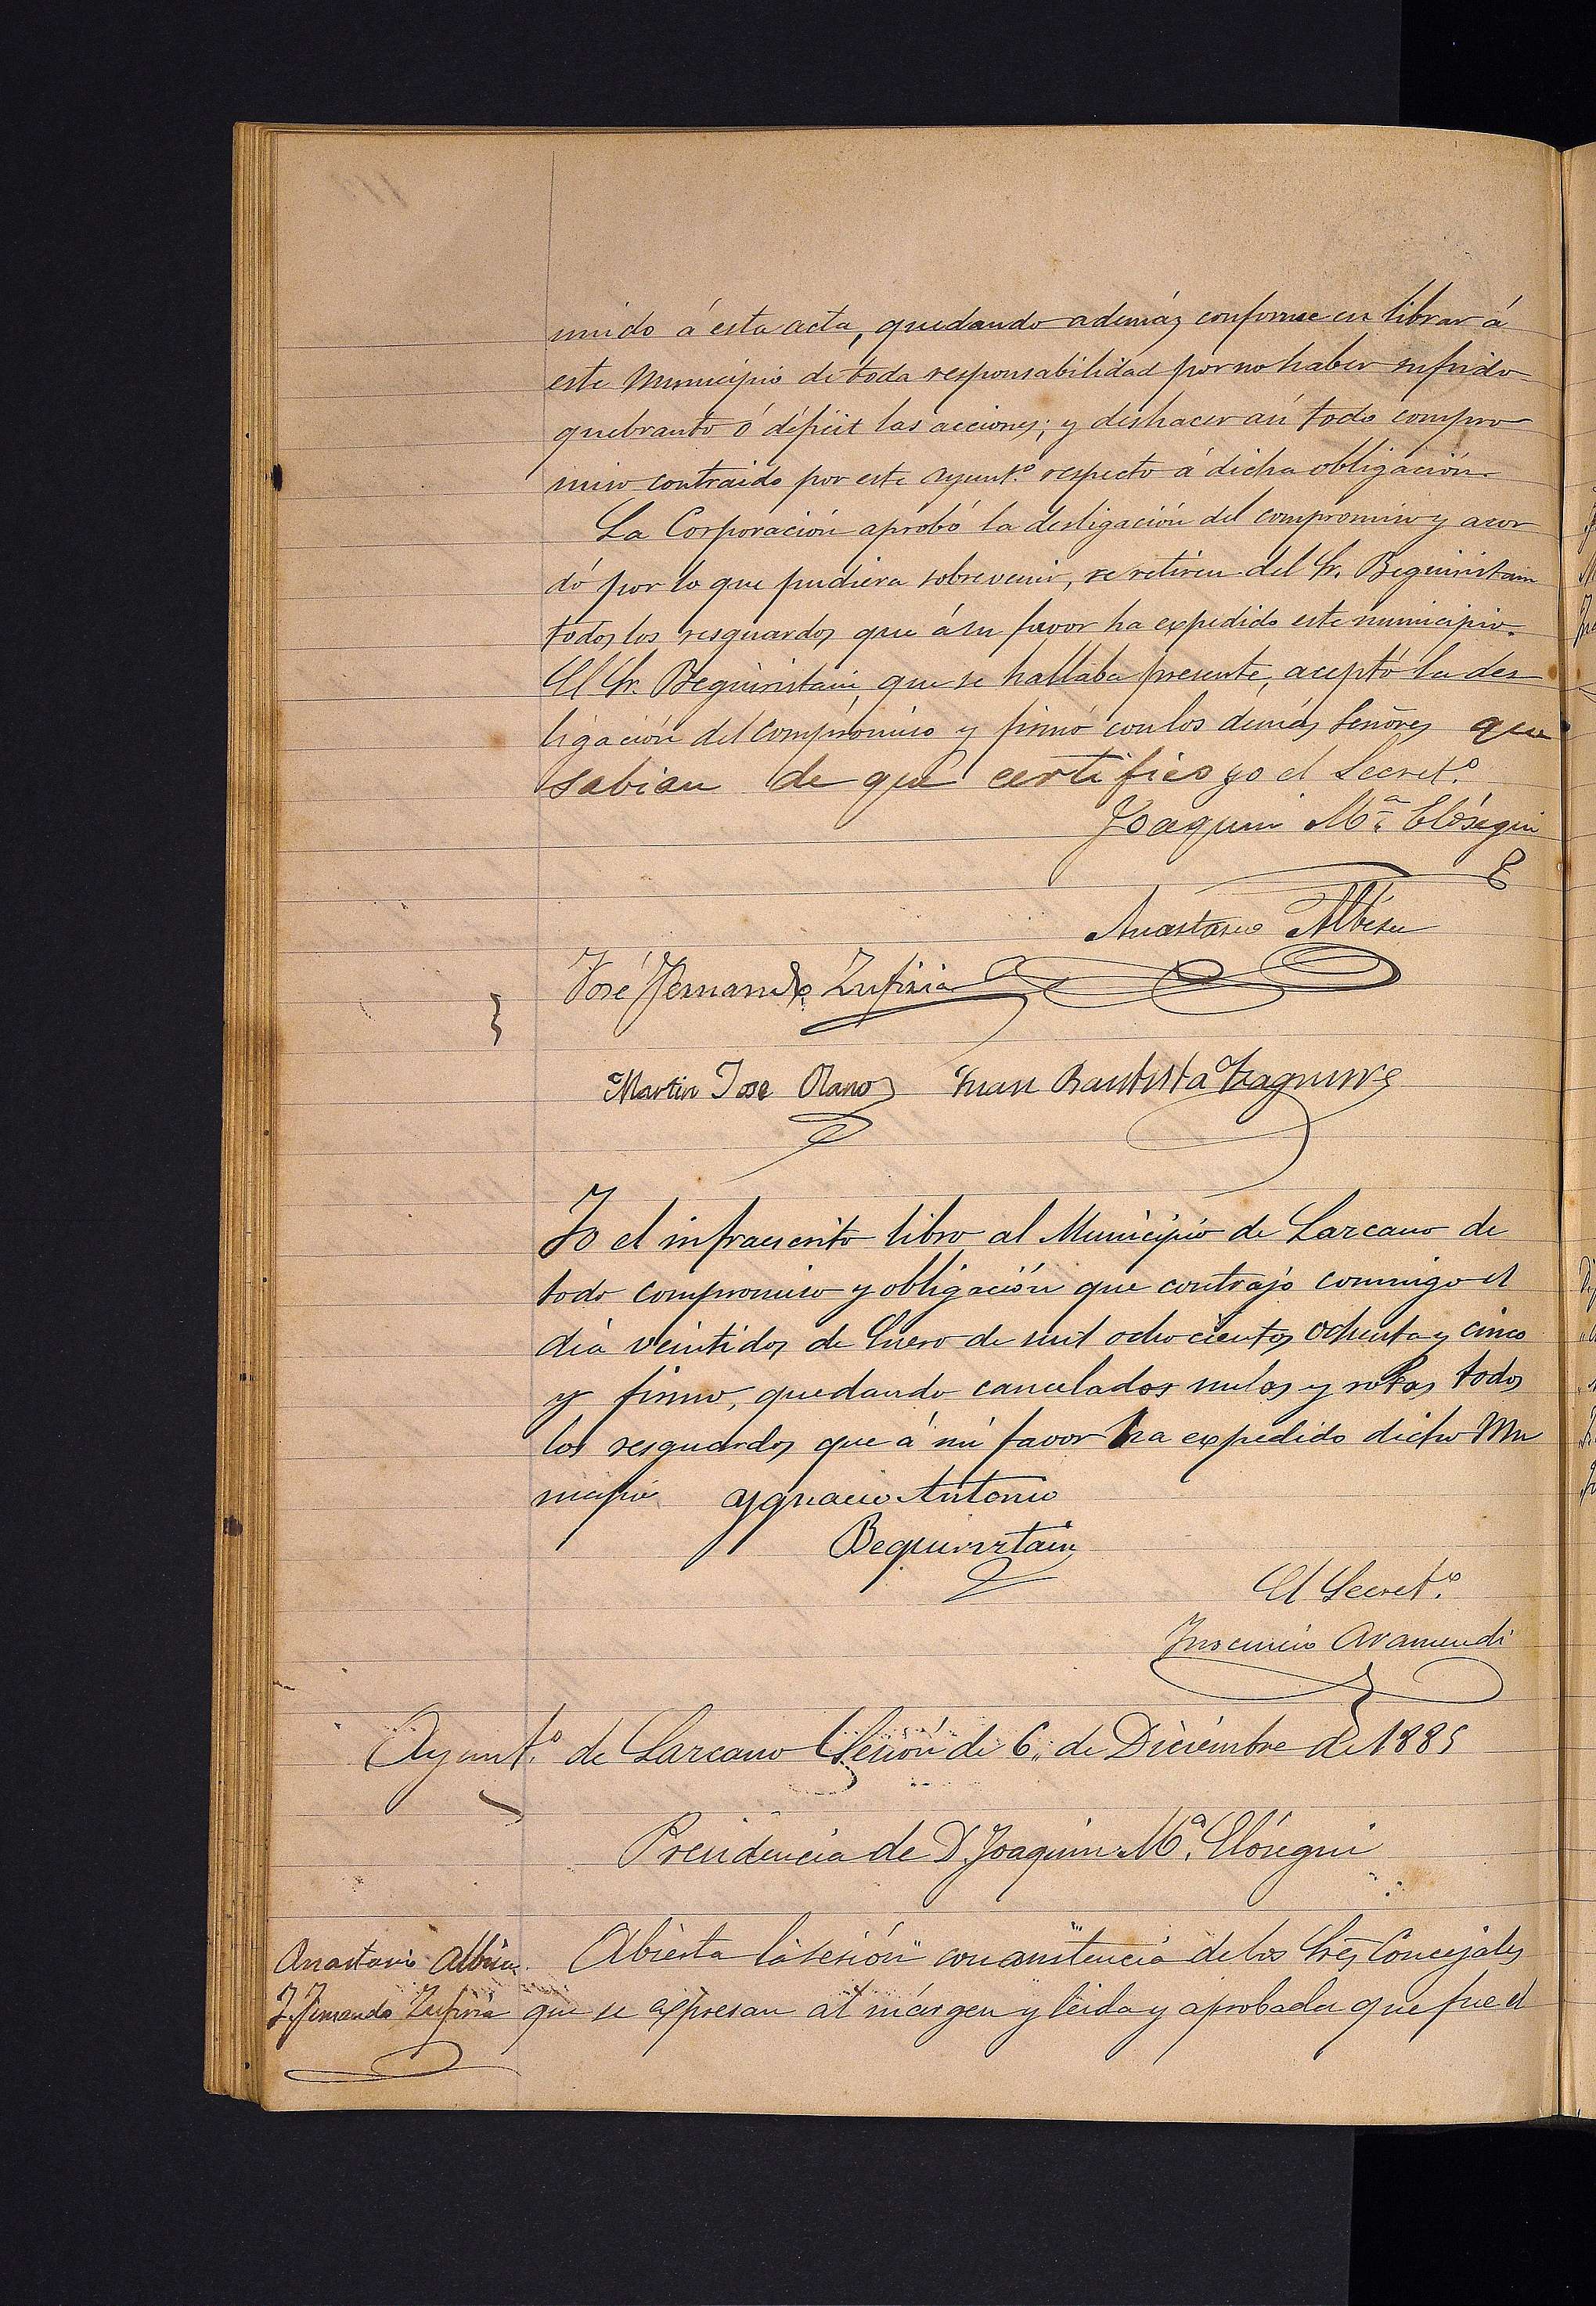 unido á esta acta, quedando además conforme en librar á
este Municipio de toda responsabilidad por no haber sufrido
quebranto ó déficit las acciones; y deshacer así todo compro
miso contraido por este ayunt.º respecto á dicha obligación.
La Corporación aprobó la desligación del compromiso y acor
dó por lo que pudiera sobrevenir, se retiren del Sr. Beguiristain
todos los resguardos que á su favor ha expedido este municipio.
El Sr. Beguiristain, que se hallaba presente, aceptó la des
ligación del compromiso y firmó con los demás Señores que
sabian de que certifico yo el Secret.º
Joaquin M.ª Elósegui
Anastasio Albisu
José Fernando Zufiria
Martin Jose Olano Juan Bautista
Yo el infraescrito libro al Municipio de Lazcano de
todo compromiso y obligación que contrajo conmigo el
dia veintidos de Enero de mil ochocientos ochenta y cinco
y firmo, quedando cancelados nulos y rotos todos
los resguardos que á mi favor ha expedido dicho Mu
nicipio Ygnacio Antonio
Beguiristain
El Secret.º
Inocencio Aramendi
Ayunt.º de Lazcano Sesión de 6,, de Diciembre de 1885
Presidencia de D. Joaquin M.ª Elósegui
Anastasio Albisu
J. Fernando Zufiria
Abierta la sesión con asistencia de los Sres Concejales
que se expresan al márgen y leida y aprobada que fue el